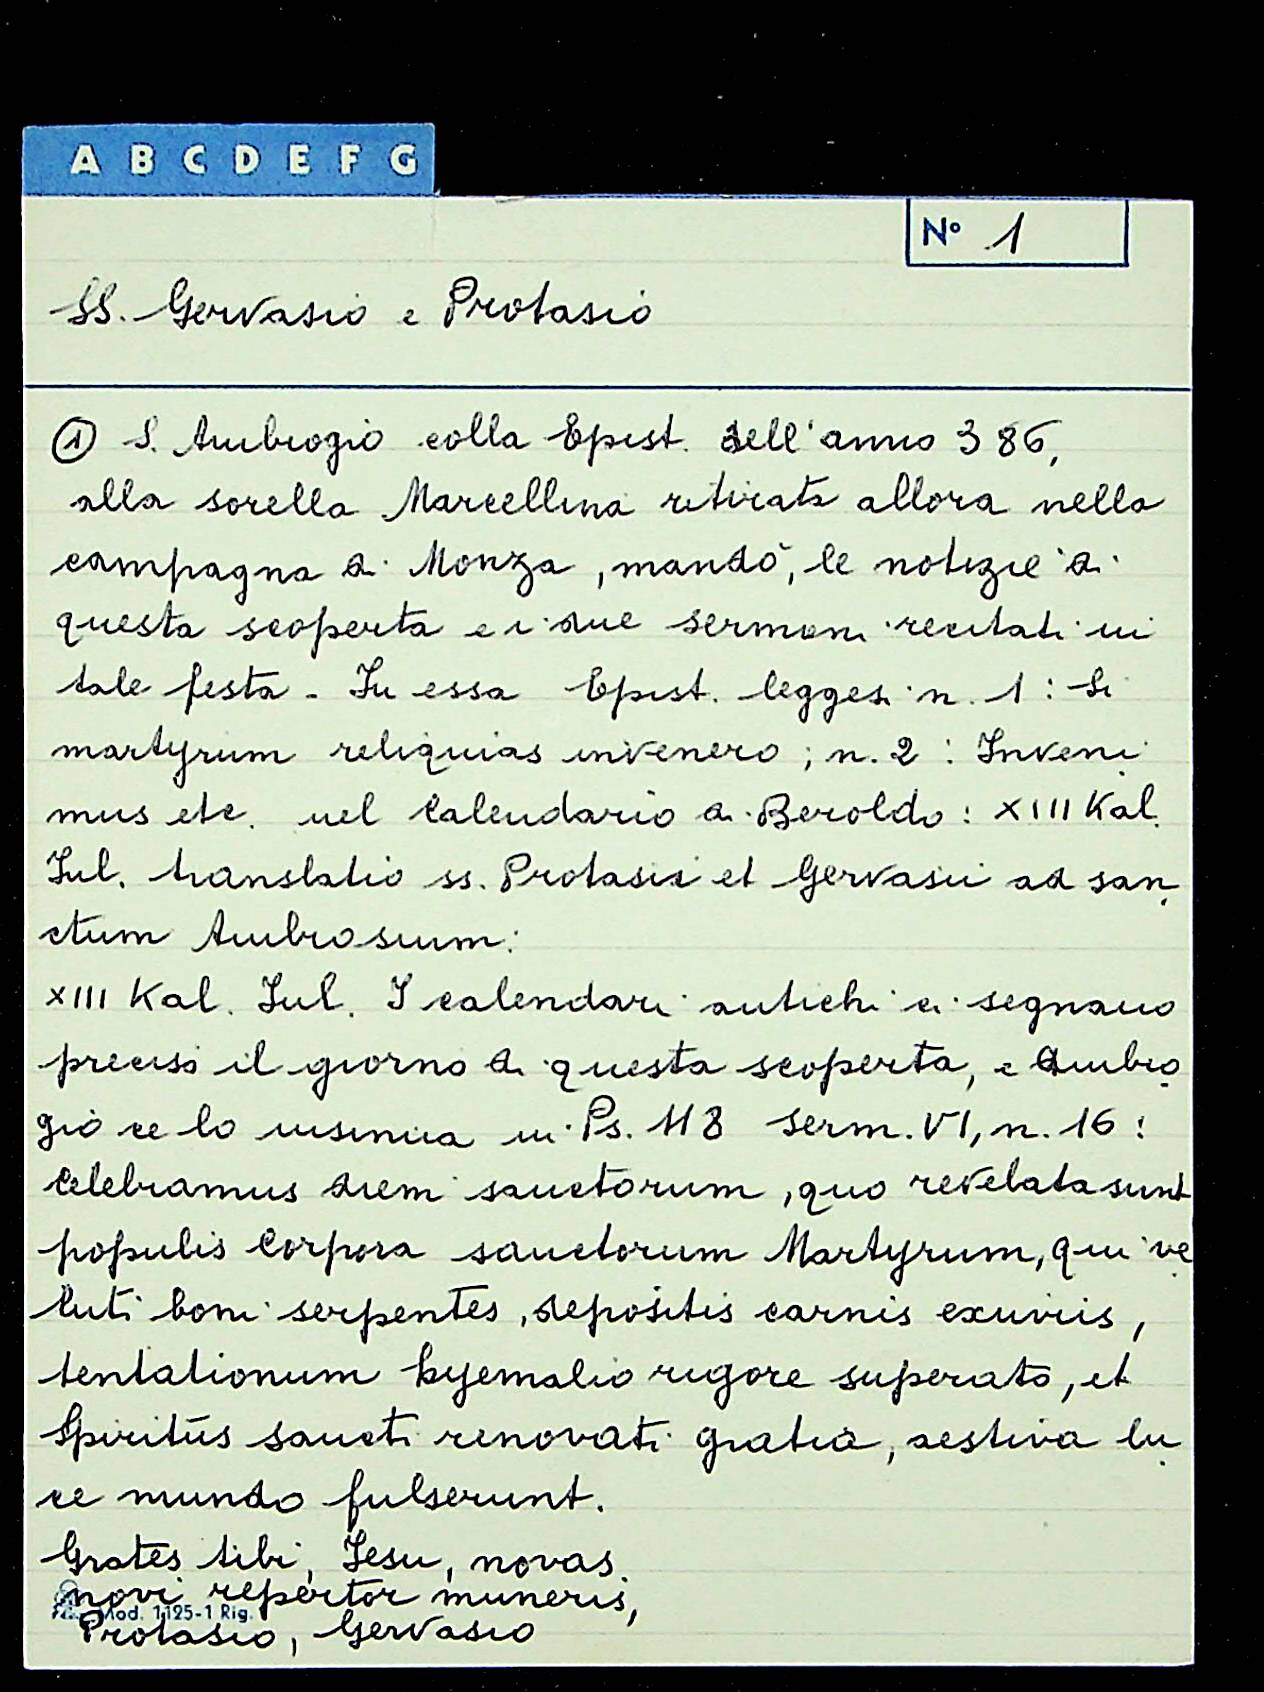 A B C D E F G
N° 1
SS. Gervasio e Protasio
① S. Ambrogio colla Epist. dell'anno 386,
alla sorella Marcellina ritirata allora nella
campagna di Monza, mandò, le notizie di
questa scoperta e i due sermoni recitati in
tale festa - In essa Epist. leggesi n. 1: Si
martyrum reliquias invenero; n. 2: Inveni
mus etc. nel Calendario di Beroldo: XIII Kal.
Iul. translatio ss. Protasii et Gervasii ad san
ctum Ambrosium:
XIII Kal. Iul. I calendari antichi ci segnano
preciso il giorno di questa scoperta, e Ambro
gio ce lo insinua in Ps. 118 serm. VI, n. 16:
Celebramus diem sanctorum, quo revelata sunt
populis Corpora sanctorum Martyrum, qui ve
luti boni serpentes, depositis carnis exuviis,
tentationum hyemalio rigore superato, et
Spiritūs sancti renovati gratia, aestiva lu
ce mundo fulserunt.
Grates tibi, Iesu, novas
novi repertor muneris,
Mod. 1125-1 Rig.
Protasio, Gervasio